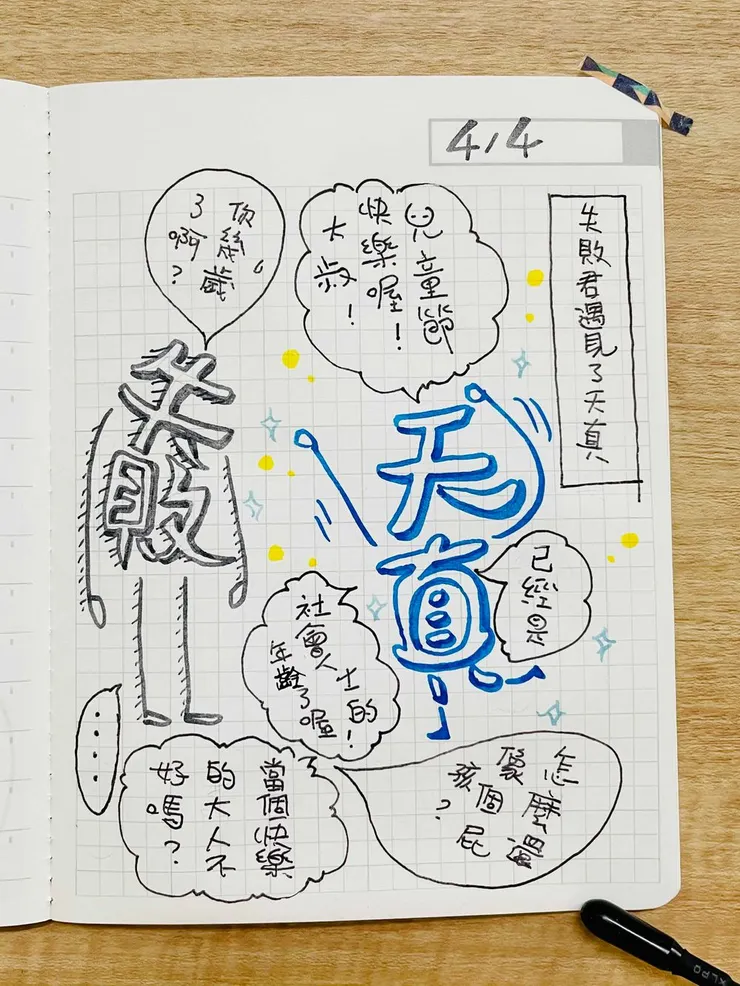 4/4
失敗君遇見了天真
兒童節
快樂喔！
大叔！
你幾歲
了啊？
天真
失敗
已經是
社會人士的
年齡了喔！
怎麼還
像個屁
孩？
當個快樂
的大人不
好嗎？
....
KLPO